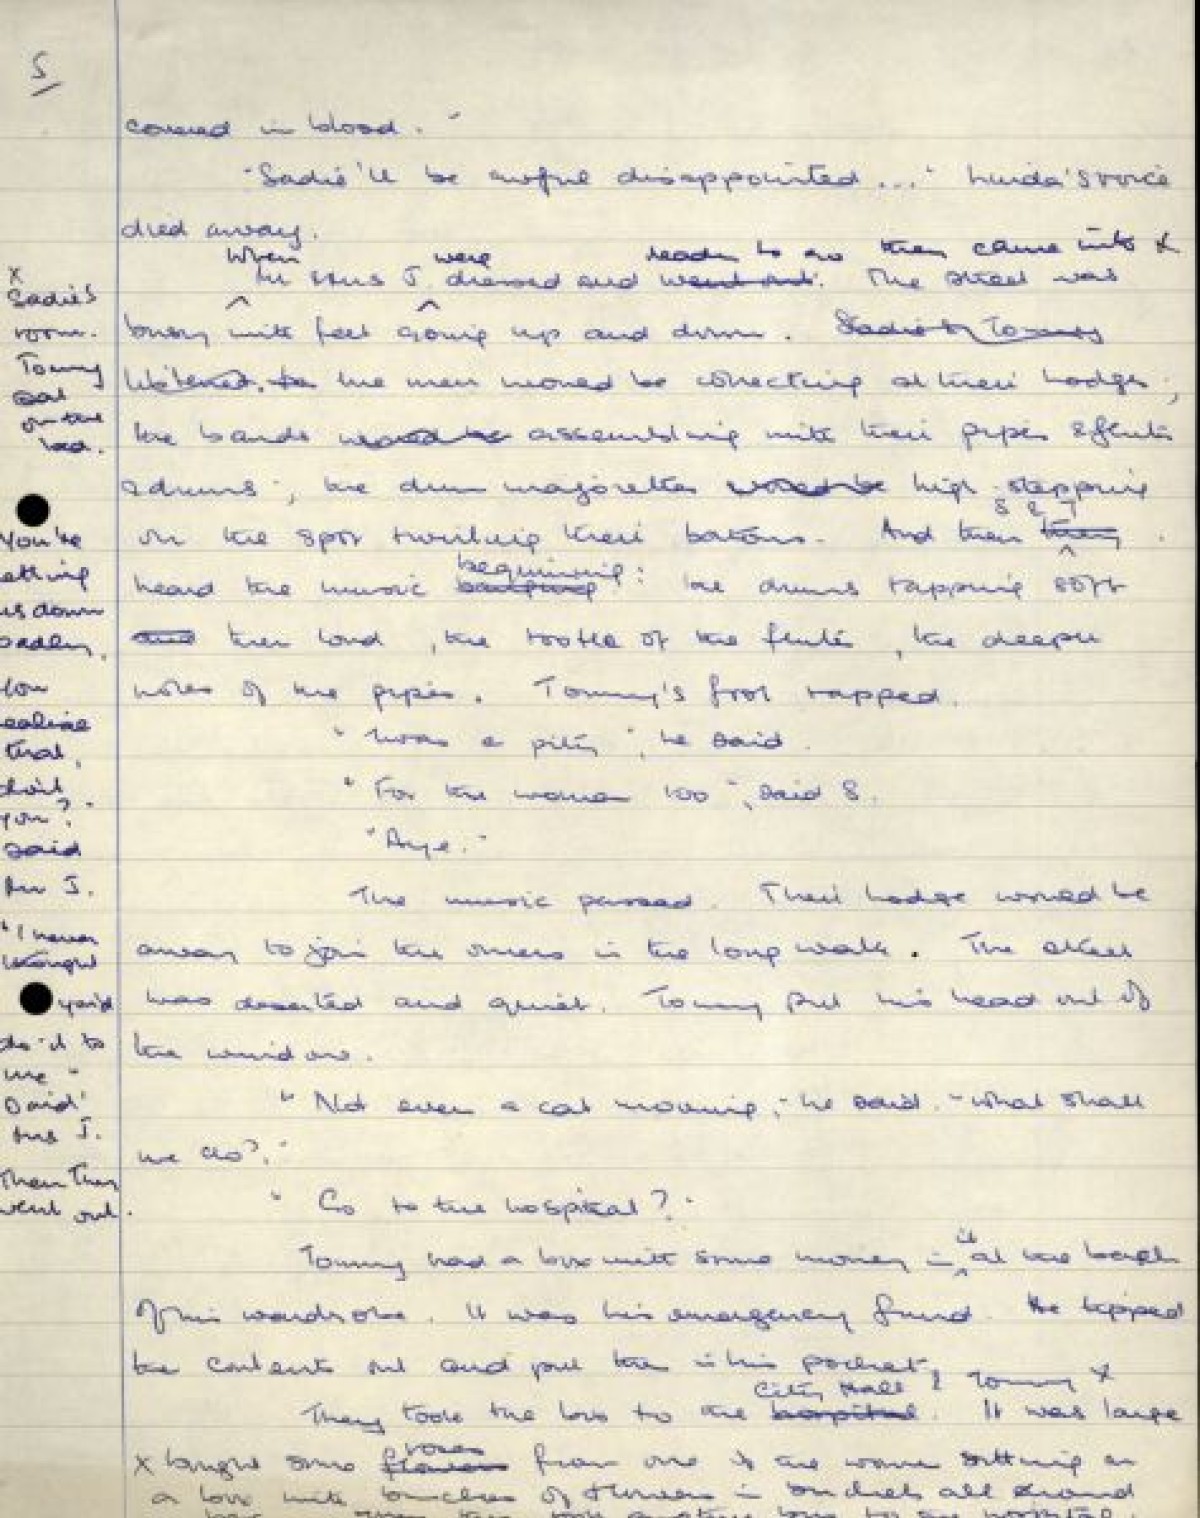 5/
covered in blood."
"Sadie'll be awful disappointed ..." Linda's voice
died away.
When were ready to go they came into x
Mr Mrs J. dressed and went out. The street was
x Sadie's
room.
Tommy
sat
on the
bed.
busy with feet going up and down. Sadie & Tommy
listened. The men would be collecting at their Lodge;
the bands would be assembling with their pipes & flutes
& drums; the drum majorettes would be high-stepping
on the spot twirling their batons. And then they
S & T
heard the music banging beginning: the drums tapping soft
and then loud, the tootle of the flutes, the deeper
notes of the pipes. Tommy's foot tapped.
"Twas a pity", he said.
"For the women too", said S.
"Aye."
You're
etting
us down
badly.
You
ealise
that,
don't
you?"
said
Mr J.
"I never
thought
you'd
do it to
me"
said
Mrs J.
Then they
went out.
The music passed. Their Lodge would be
away to join the others in the long walk. The street
was deserted and quiet. Tommy put his head out of
the window.
"Not even a cat moving," he said. "What shall
we do?"
"Go to the hospital?"
Tommy had a box with some money in it at the back
of his wardrobe. It was his emergency fund. He tipped
the contents out and put the in his pocket.
They took the bus to the hospital City Hall & Tommy x
It was large
x bought some flowers roses from one of the women sitting on
a box with bunches of flowers in buckets all around
her. Then they took another bus to the hospital.